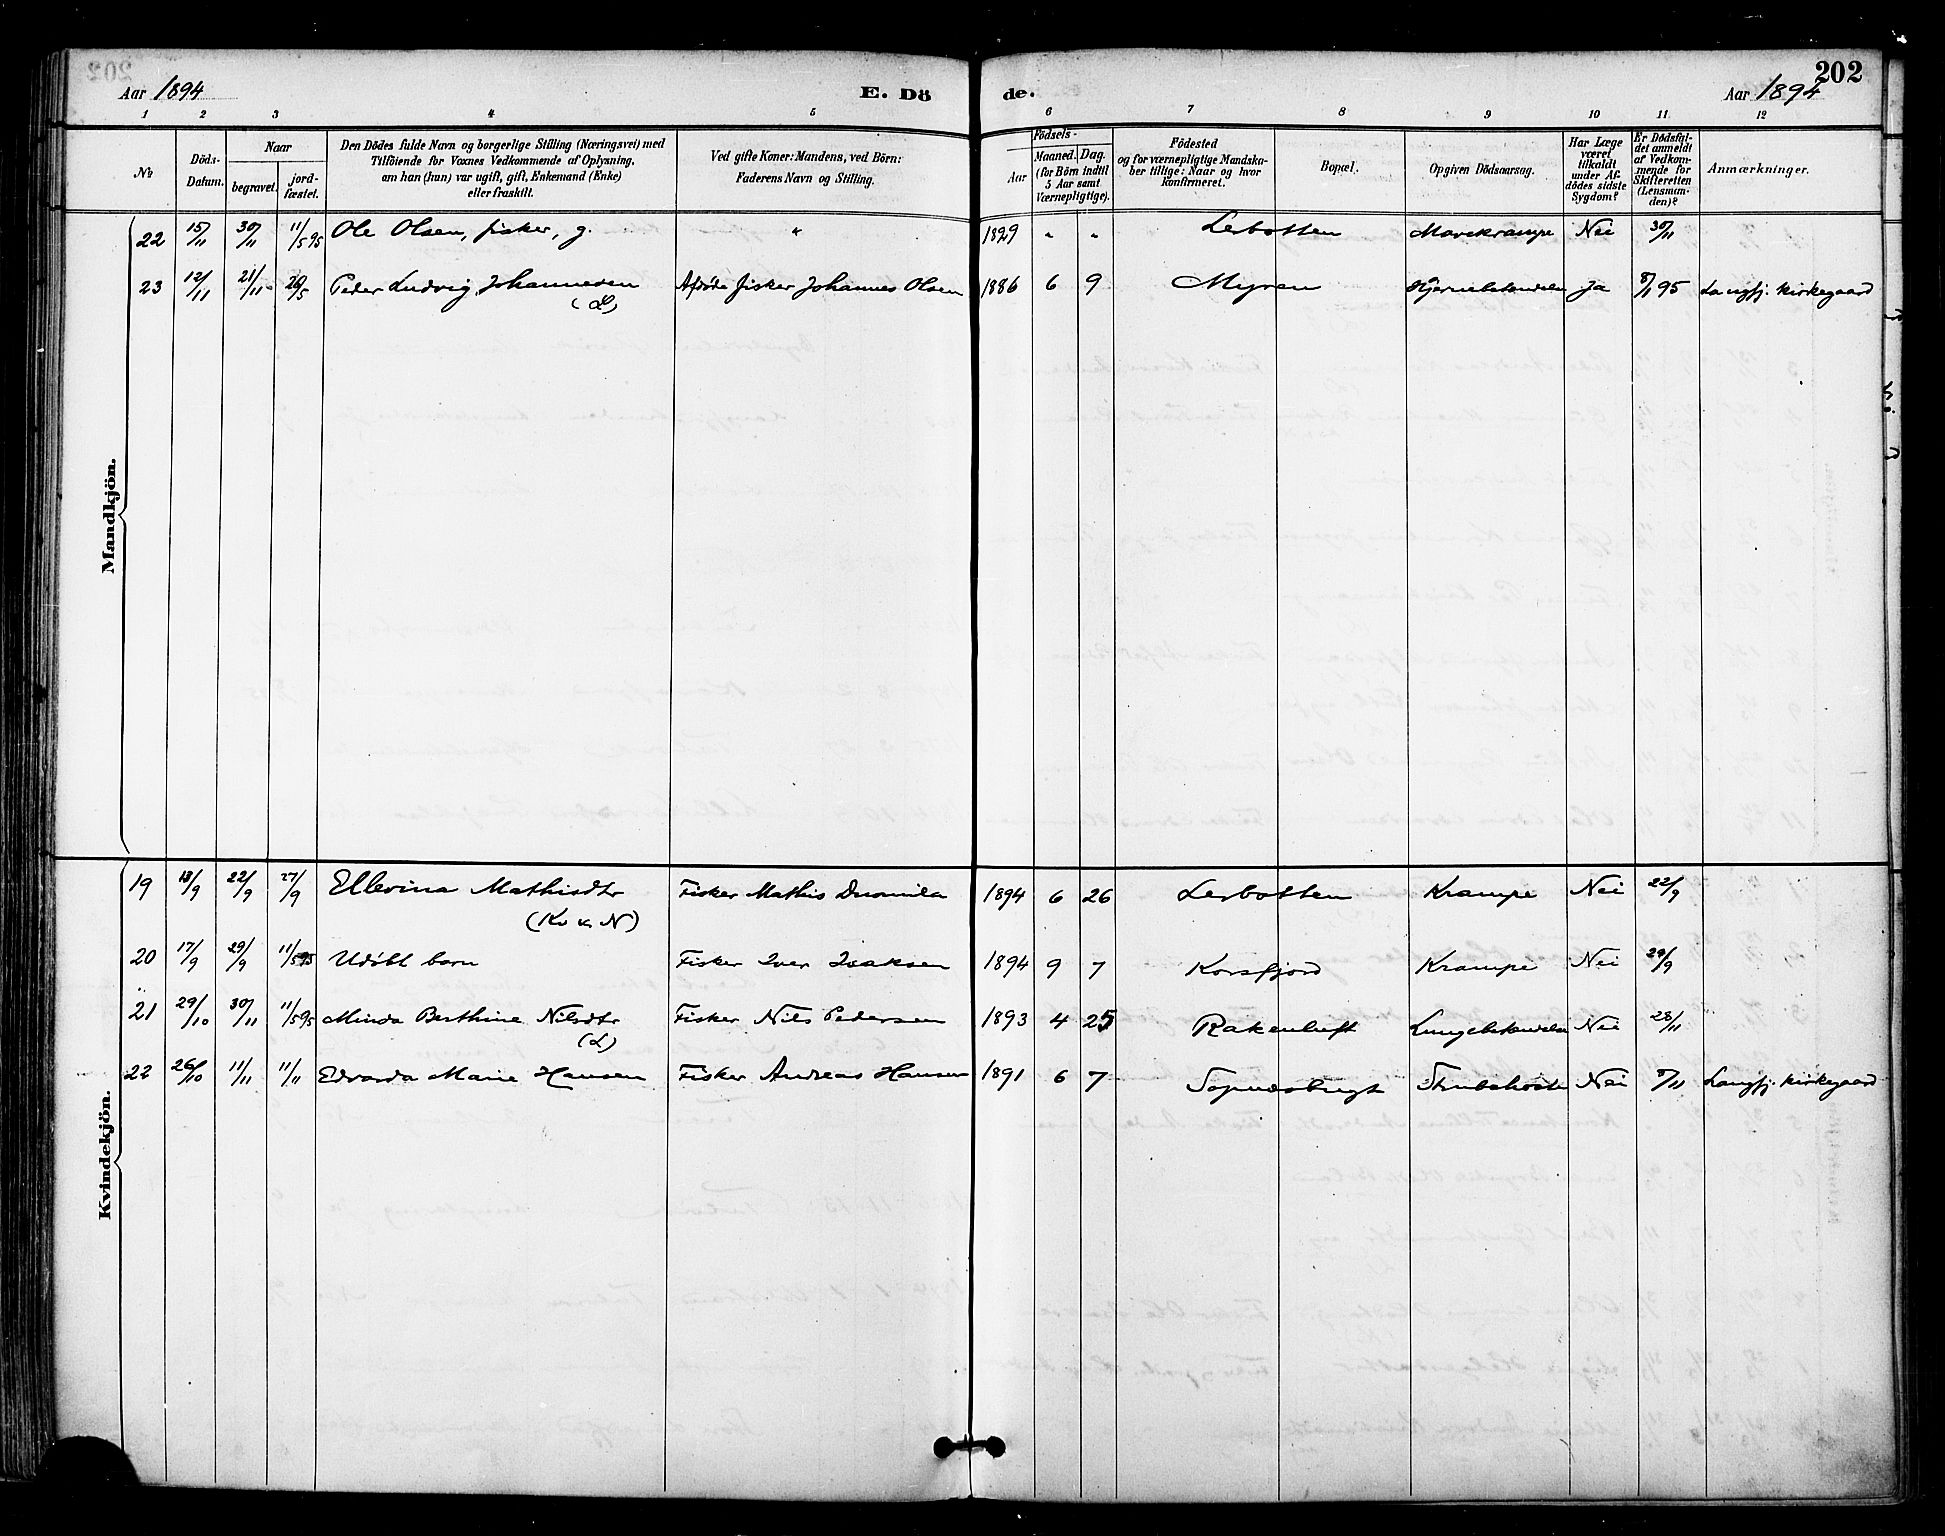 202
Aar 1894 E. Dö de. Aar 1894
1 2 3 4 5 6 7 8 9 10 11 12
No
Döds-
Datum.
Naar
begravet.
jord-
fæstet.
Den Dödes fulde Navn og borgerlige Stilling (Næringsvei) med
Tilföiende for Voxnes Vedkommende af Oplysning,
om han (hun) var ugift, gift, Enkemand (Enke)
eller fraskilt.
Ved gifte Koner: Mandens, ved Börn:
Faderens Navn og Stilling.
Födsels-
Aar
Maaned. Dag.
(for Börn indtil
5 Aar samt
Værnepligtige).
Födested
og for værnepligtige Mandska-
ber tillige: Naar og hvor
konfirmeret.
Bopæl.
Opgiven Dödsaarsag.
Har Læge
været
tilkaldt
under Af-
dödes sidste
Sygdom?
Er Dödsfal-
det anmeldt
af Vedkom-
mende for
Skifteretten
(Lensman-
den)?
Anmærkninger.
Mandkjön.
22 15/11 30/11 11/5 95 Ole Olsen, fisker, g. " 1829 " " Lerbotten Mavekrampe Nei 30/11
23 12/11 21/11 26/5 Peder Ludvig Johannesen Afdöde fisker Johannes Olsen 1886 6 9 Myren Hjernebetændelse Ja 8/1 95 Langfj. Kirkegaard
(L)
Kvindekjön.
19 18/9 22/9 27/9 Ellevina Mathisdtr Fisker Mathis 1894 6 26 Lerbotten Krampe Nei 22/9
(Kv v. N)
20 17/9 29/9 11/5 95 Udöbt barn Fisker Iver Isaksen 1894 9 7 Korsfjord Krampe Nei 29/9
21 29/10 30/11 11/5 95 Minda Berthine Nilsdtr Fisker Nils Pedersen 1893 4 25 Rakenluft Lungebetændelse Nei 28/11
(L)
22 26/10 11/11 11/11 Edvarda Marie Hansen Fisker Andreas Hansen 1891 6 7 Sopnesbugt Strubehoste Nei 8/11 Langfj. Kirkegaard